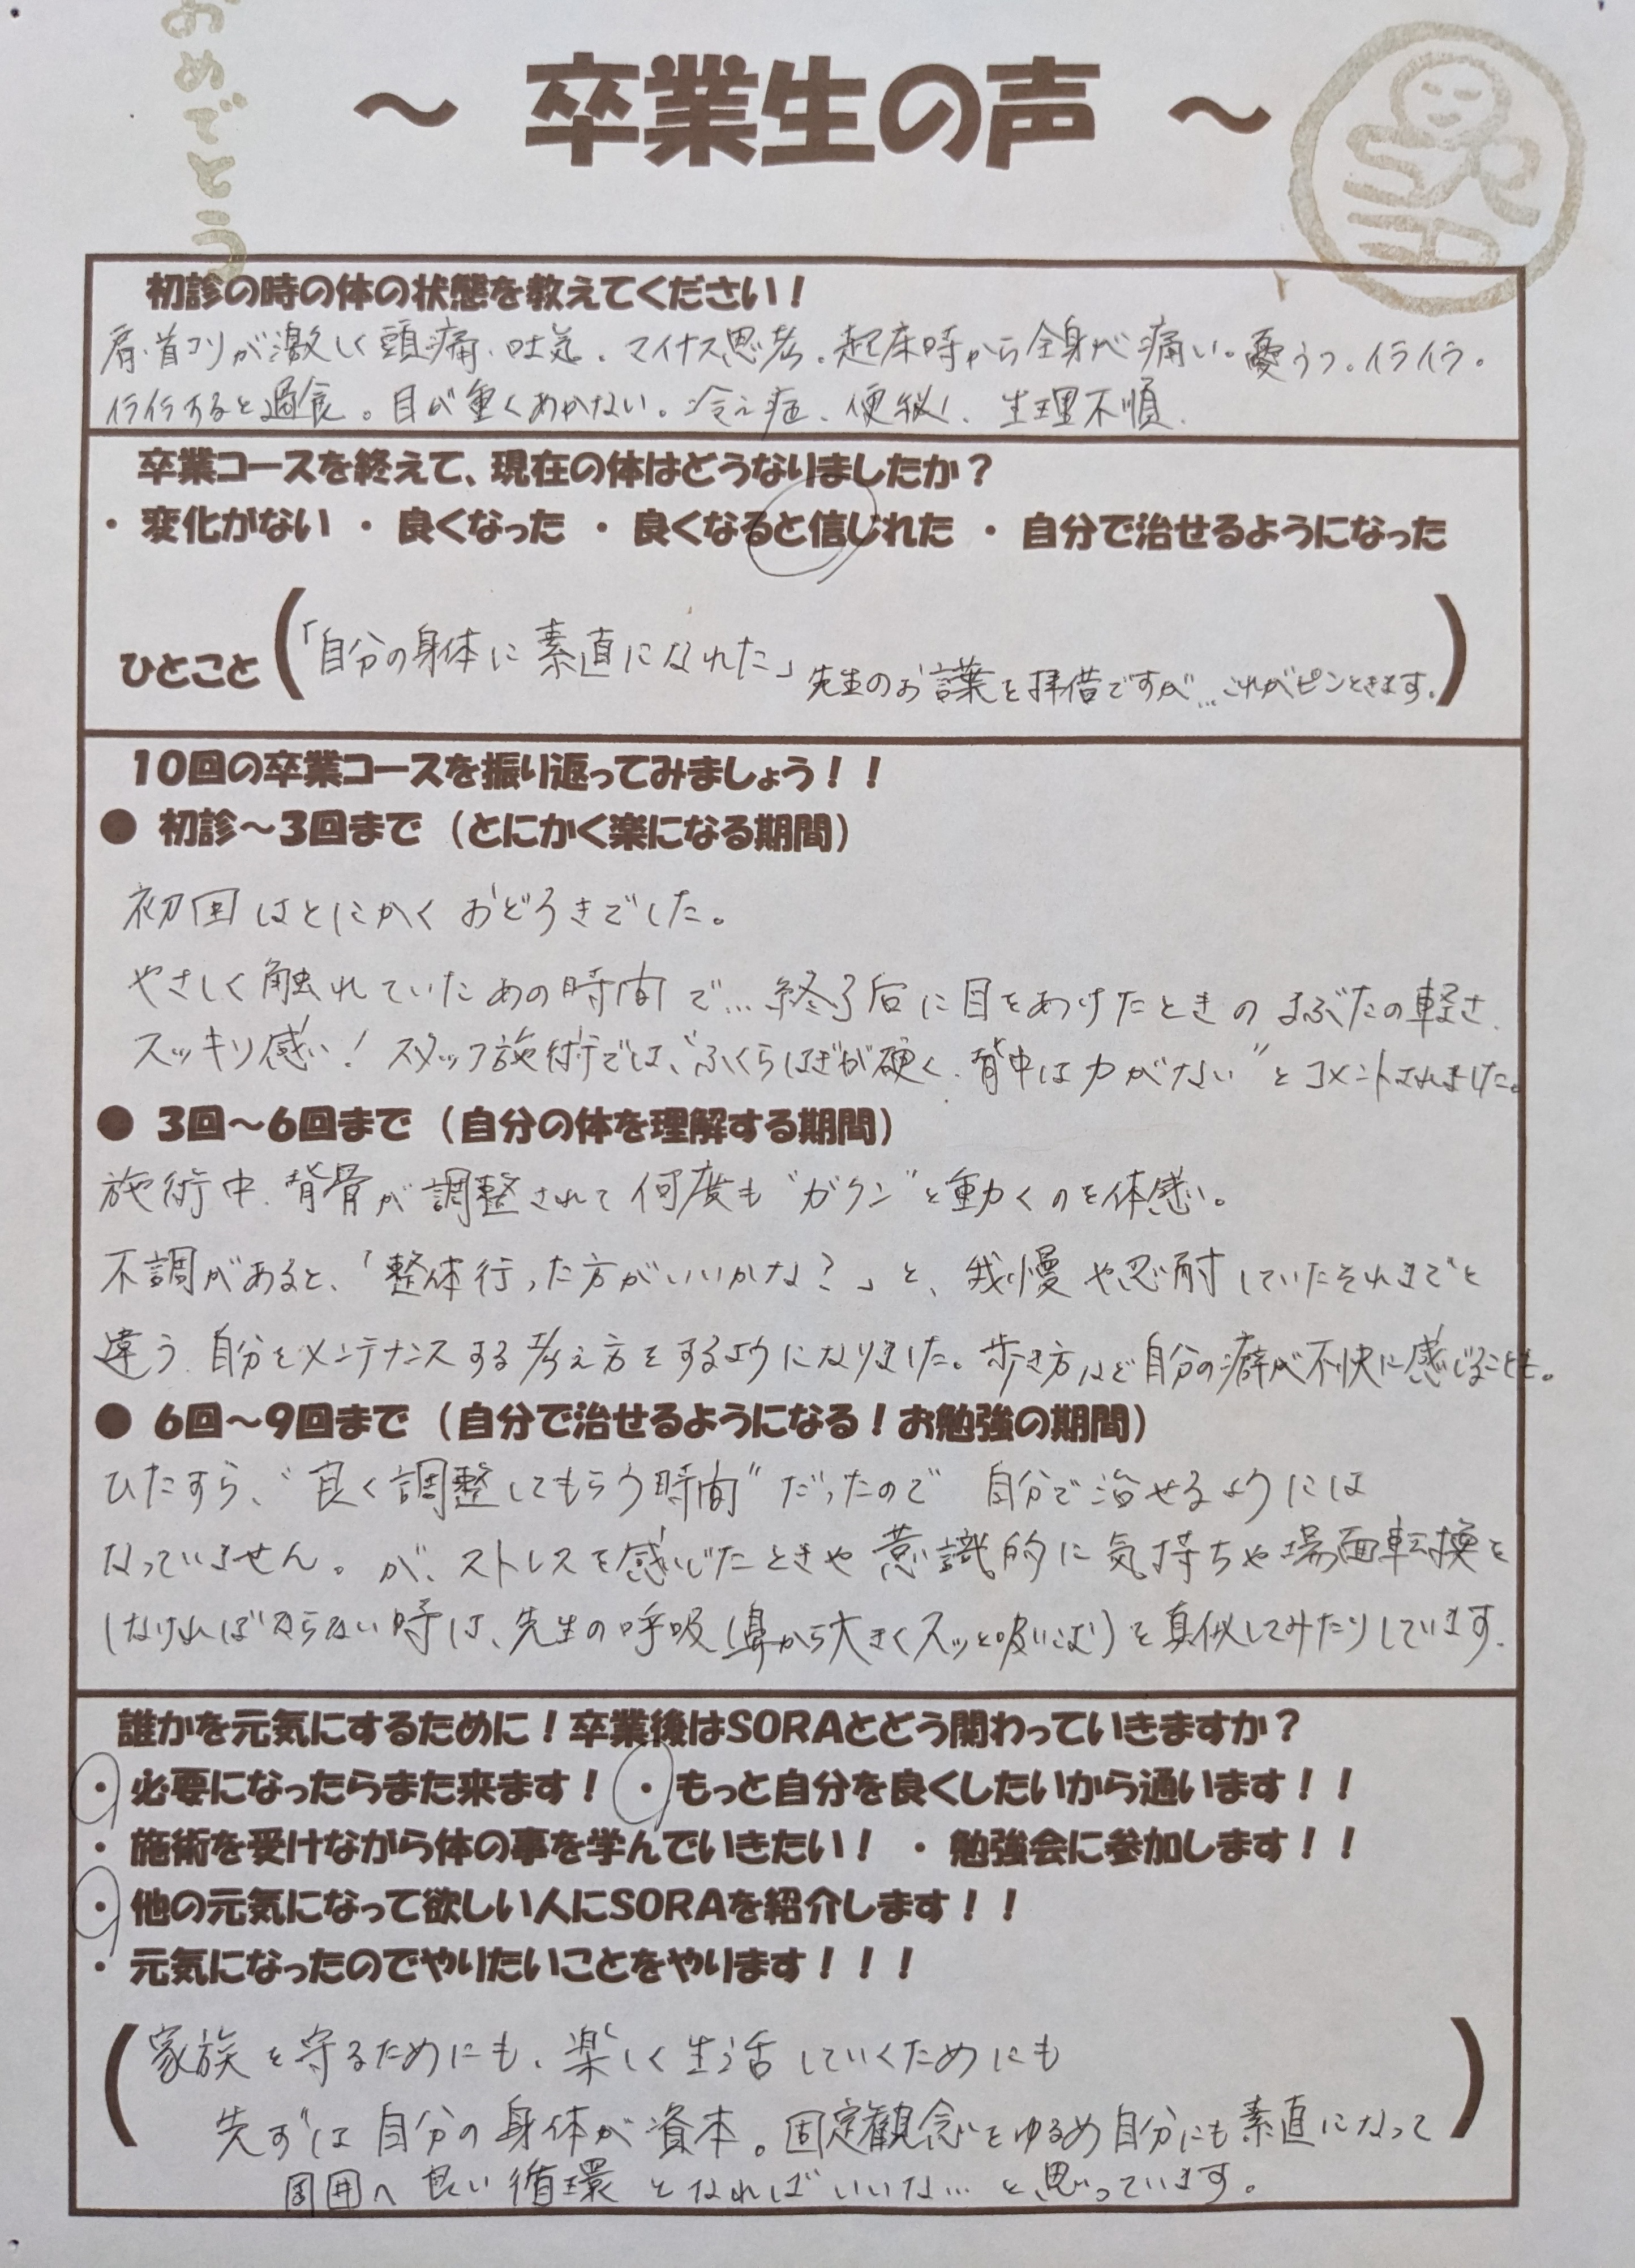 おめでとう
～ 卒業生の声 ～
初診の時の体の状態を教えてください！
肩・首コリが激しく頭痛、吐気、マイナス思考、起床時から全身が痛い。憂うつ、イライラ。
イライラすると過食。目が重くあかない。冷え症、便秘、生理不順
卒業コースを終えて、現在の体はどうなりましたか？
・ 変化がない ・ 良くなった ・ 良くなると信じれた ・ 自分で治せるようになった
ひとこと（「自分の身体に素直になれた」先生のお言葉を拝借ですが…これがピンときます。）
10回の卒業コースを振り返ってみましょう！！
● 初診～3回まで（とにかく楽になる期間）
初回はとにかくおどろきでした。
やさしく触れていたあの時間で…終了后に目をあけたときのまぶたの軽さ、
スッキリ感！スタッフ施術では、“ふくらはぎが硬く、背中は力がない”とコメントされました。
● 3回～6回まで（自分の体を理解する期間）
施術中、背骨が調整されて何度も“ガクン”と動くのを体感。
不調があると、「整体行った方がいいかな？」と、我慢や忍耐していたそれまでと
違う、自分をメンテナンスする考え方をするようになりました。歩き方など自分の癖が不快に感じることも。
● 6回～9回まで（自分で治せるようになる！お勉強の期間）
ひたすら、“良く調整してもらう時間”だったので 自分で治せるようには
なっていません。が、ストレスを感じたときや意識的に気持ちや場面転換を
しなければならない時は、先生の呼吸（鼻から大きくスッと吸いこむ）を真似してみたりしています。
誰かを元気にするために！卒業後はSORAとどう関わっていきますか？
・ 必要になったらまた来ます！ ・ もっと自分を良くしたいから通います！！
・ 施術を受けながら体の事を学んでいきたい！ ・ 勉強会に参加します！！
・ 他の元気になって欲しい人にSORAを紹介します！！
・ 元気になったのでやりたいことをやります！！！
（家族を守るためにも、楽しく生活していくためにも
先ずは自分の身体が資本。固定観念をゆるめ自分にも素直になって
周囲へ良い循環となればいいな…と思っています。）